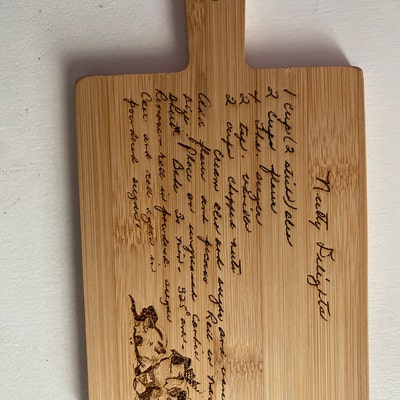 Nutty Delights
1 cup (2 sticks) oleo
2 cups flour
4 Tbs. sugar
2 tsp. vanilla
2 cups chopped nuts
Cream oleo and sugar and
Add flour and pecans Roll in
size. Place on ungreased cookie
sheet Bake 30 min. 325° oven.
Remove - roll in powdered sugar
Cool and roll again in
powdered sugar.